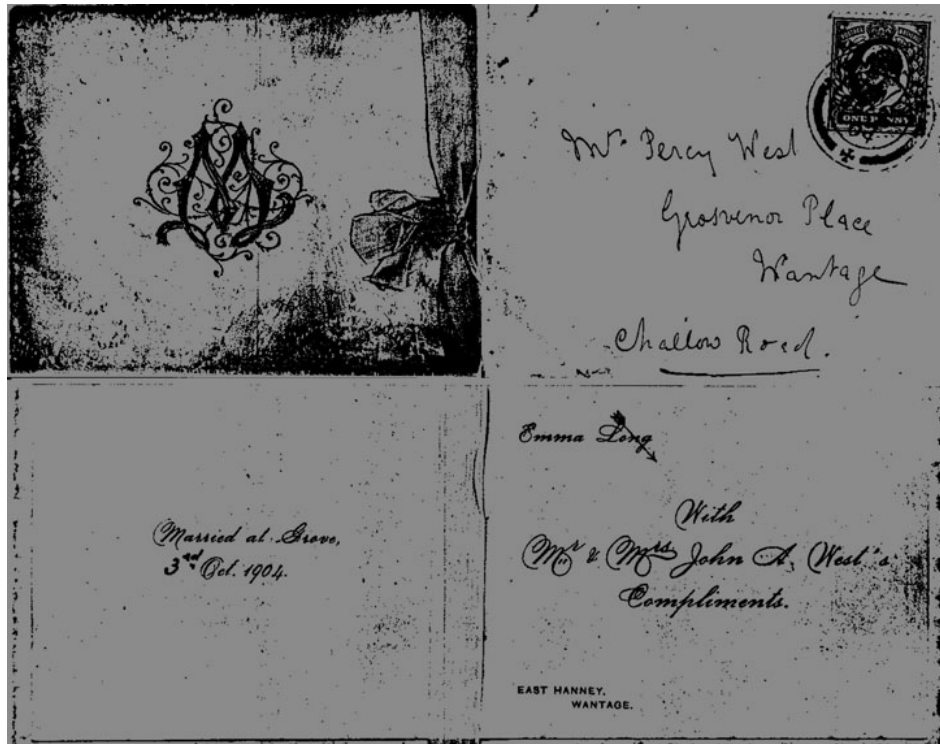 Mr. Percy West
Grosvenor Place
Wantage
Challow Road.
ONE PENNY
Married at Grove,
3rd Oct. 1904.
Emma Long
With
Mr & Mrs John A. West's
Compliments.
EAST HANNEY,
WANTAGE.